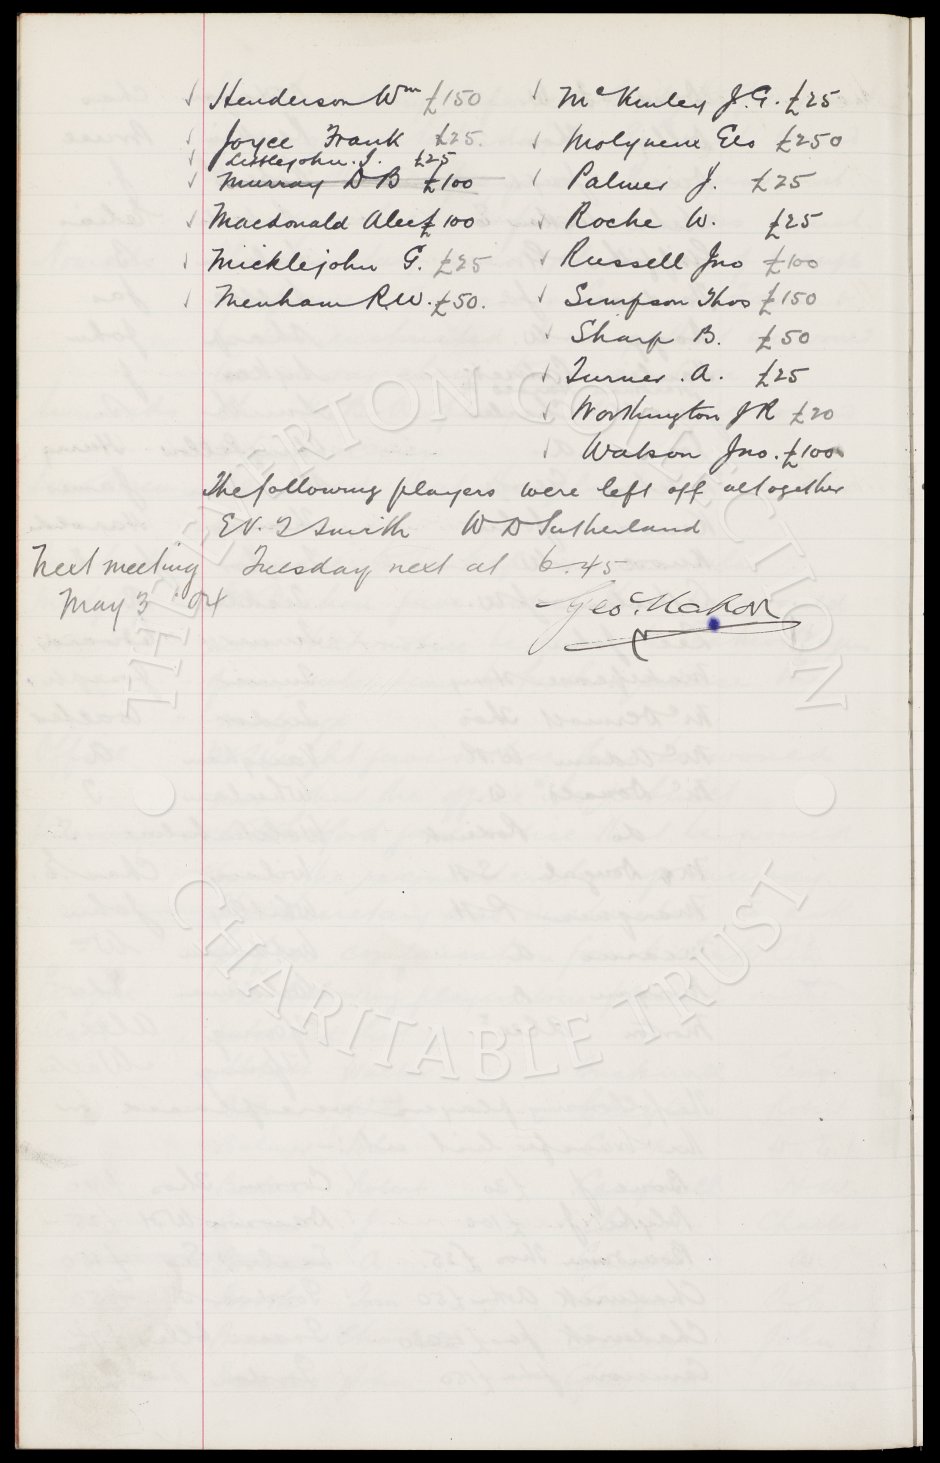 Henderson Wm £150
Joyce Frank £25.
Littlejohn. J. £25
Murray D B £100
Macdonald Alec £100
Micklejohn G. £25
Menham R.W. £50.
McKinley J.G. £25
Molyneux Geo £250
Palmer J. £25
Roche W. £25
Russell Jno £100
Simpson Thos £150
Sharp B. £50
Turner. A. £25
Worthington J R £20
Watson Jno. £100
The following players were left off altogether
Smith W D Sutherland
Next meeting Tuesday next at 6.45
May 3 '04
Geo. Mahon
THE EVERTON COLLECTION
CHARITABLE TRUST